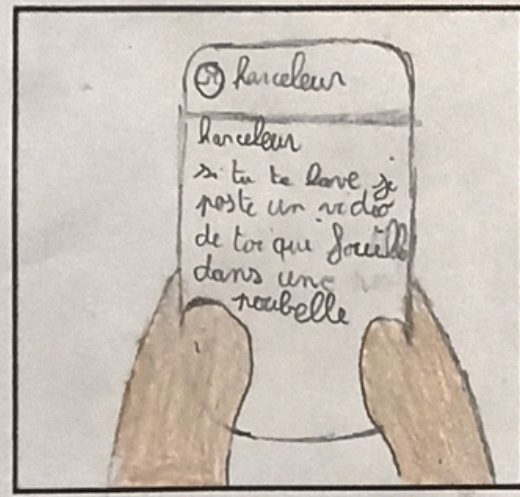 harceleur
harceleur
si tu te lave je
poste un vidéo
de toi qui fouille
dans une
poubelle